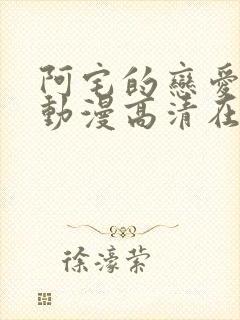 阿宅的戀愛
動漫高清在
徐濠縈